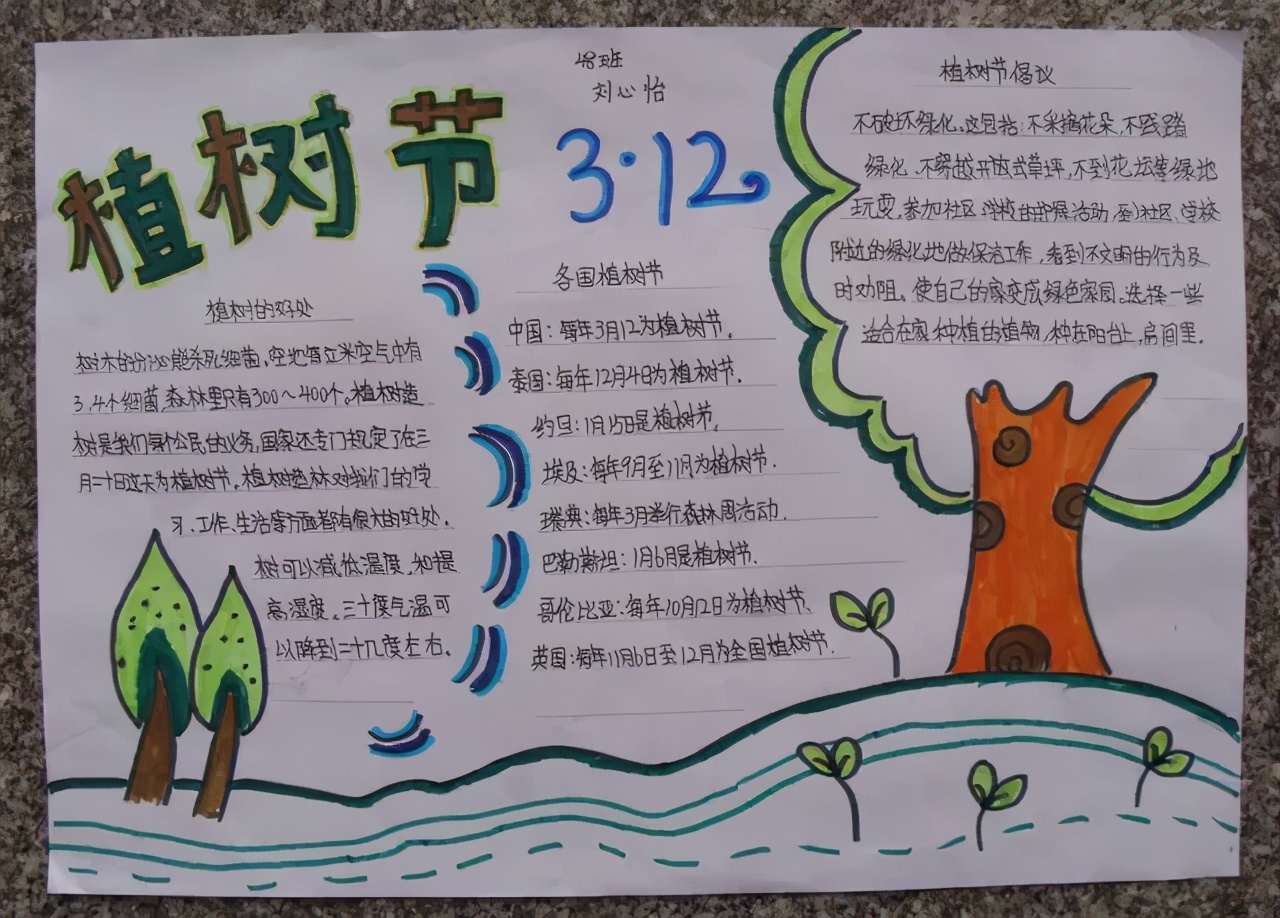 48班
刘心怡
植树节
3·12
植树的好处
树木的分泌能杀死细菌，空地每立米空气中有
3.4个细菌，森林里只有300～400个。植树造
树是我们每个公民的义务，国家还专门规定了在三
月二十日这天为植树节。植树造林对我们的学
习、工作、生活等方面都有很大的好处。
树可以减低温度，和提
高湿度。三十度气温可
以降到二十几度左右。
各国植树节
中国：每年3月12为植树节。
泰国：每年12月4日为植树节。
约旦：1月15日是植树节。
埃及：每年9月至11月为植树节．
瑞典：每年3月举行森林周活动．
巴勒斯坦：1月6日是植树节．
哥伦比亚：每年10月12日为植树节、
英国：每年11月6日至12月为全国植树节．
植树节倡议
不破坏绿化。这包括：不采摘花朵，不践踏
绿化，不穿越开放式草坪，不到花坛等绿地
玩耍，参加社区、学校的护绿活动，到社区、学校
附近的绿化地做保洁工作，看到不文明的行为及
时劝阻。使自己的家变成绿色家园。选择一些
适合在家种植的植物，种在阳台上，房间里．